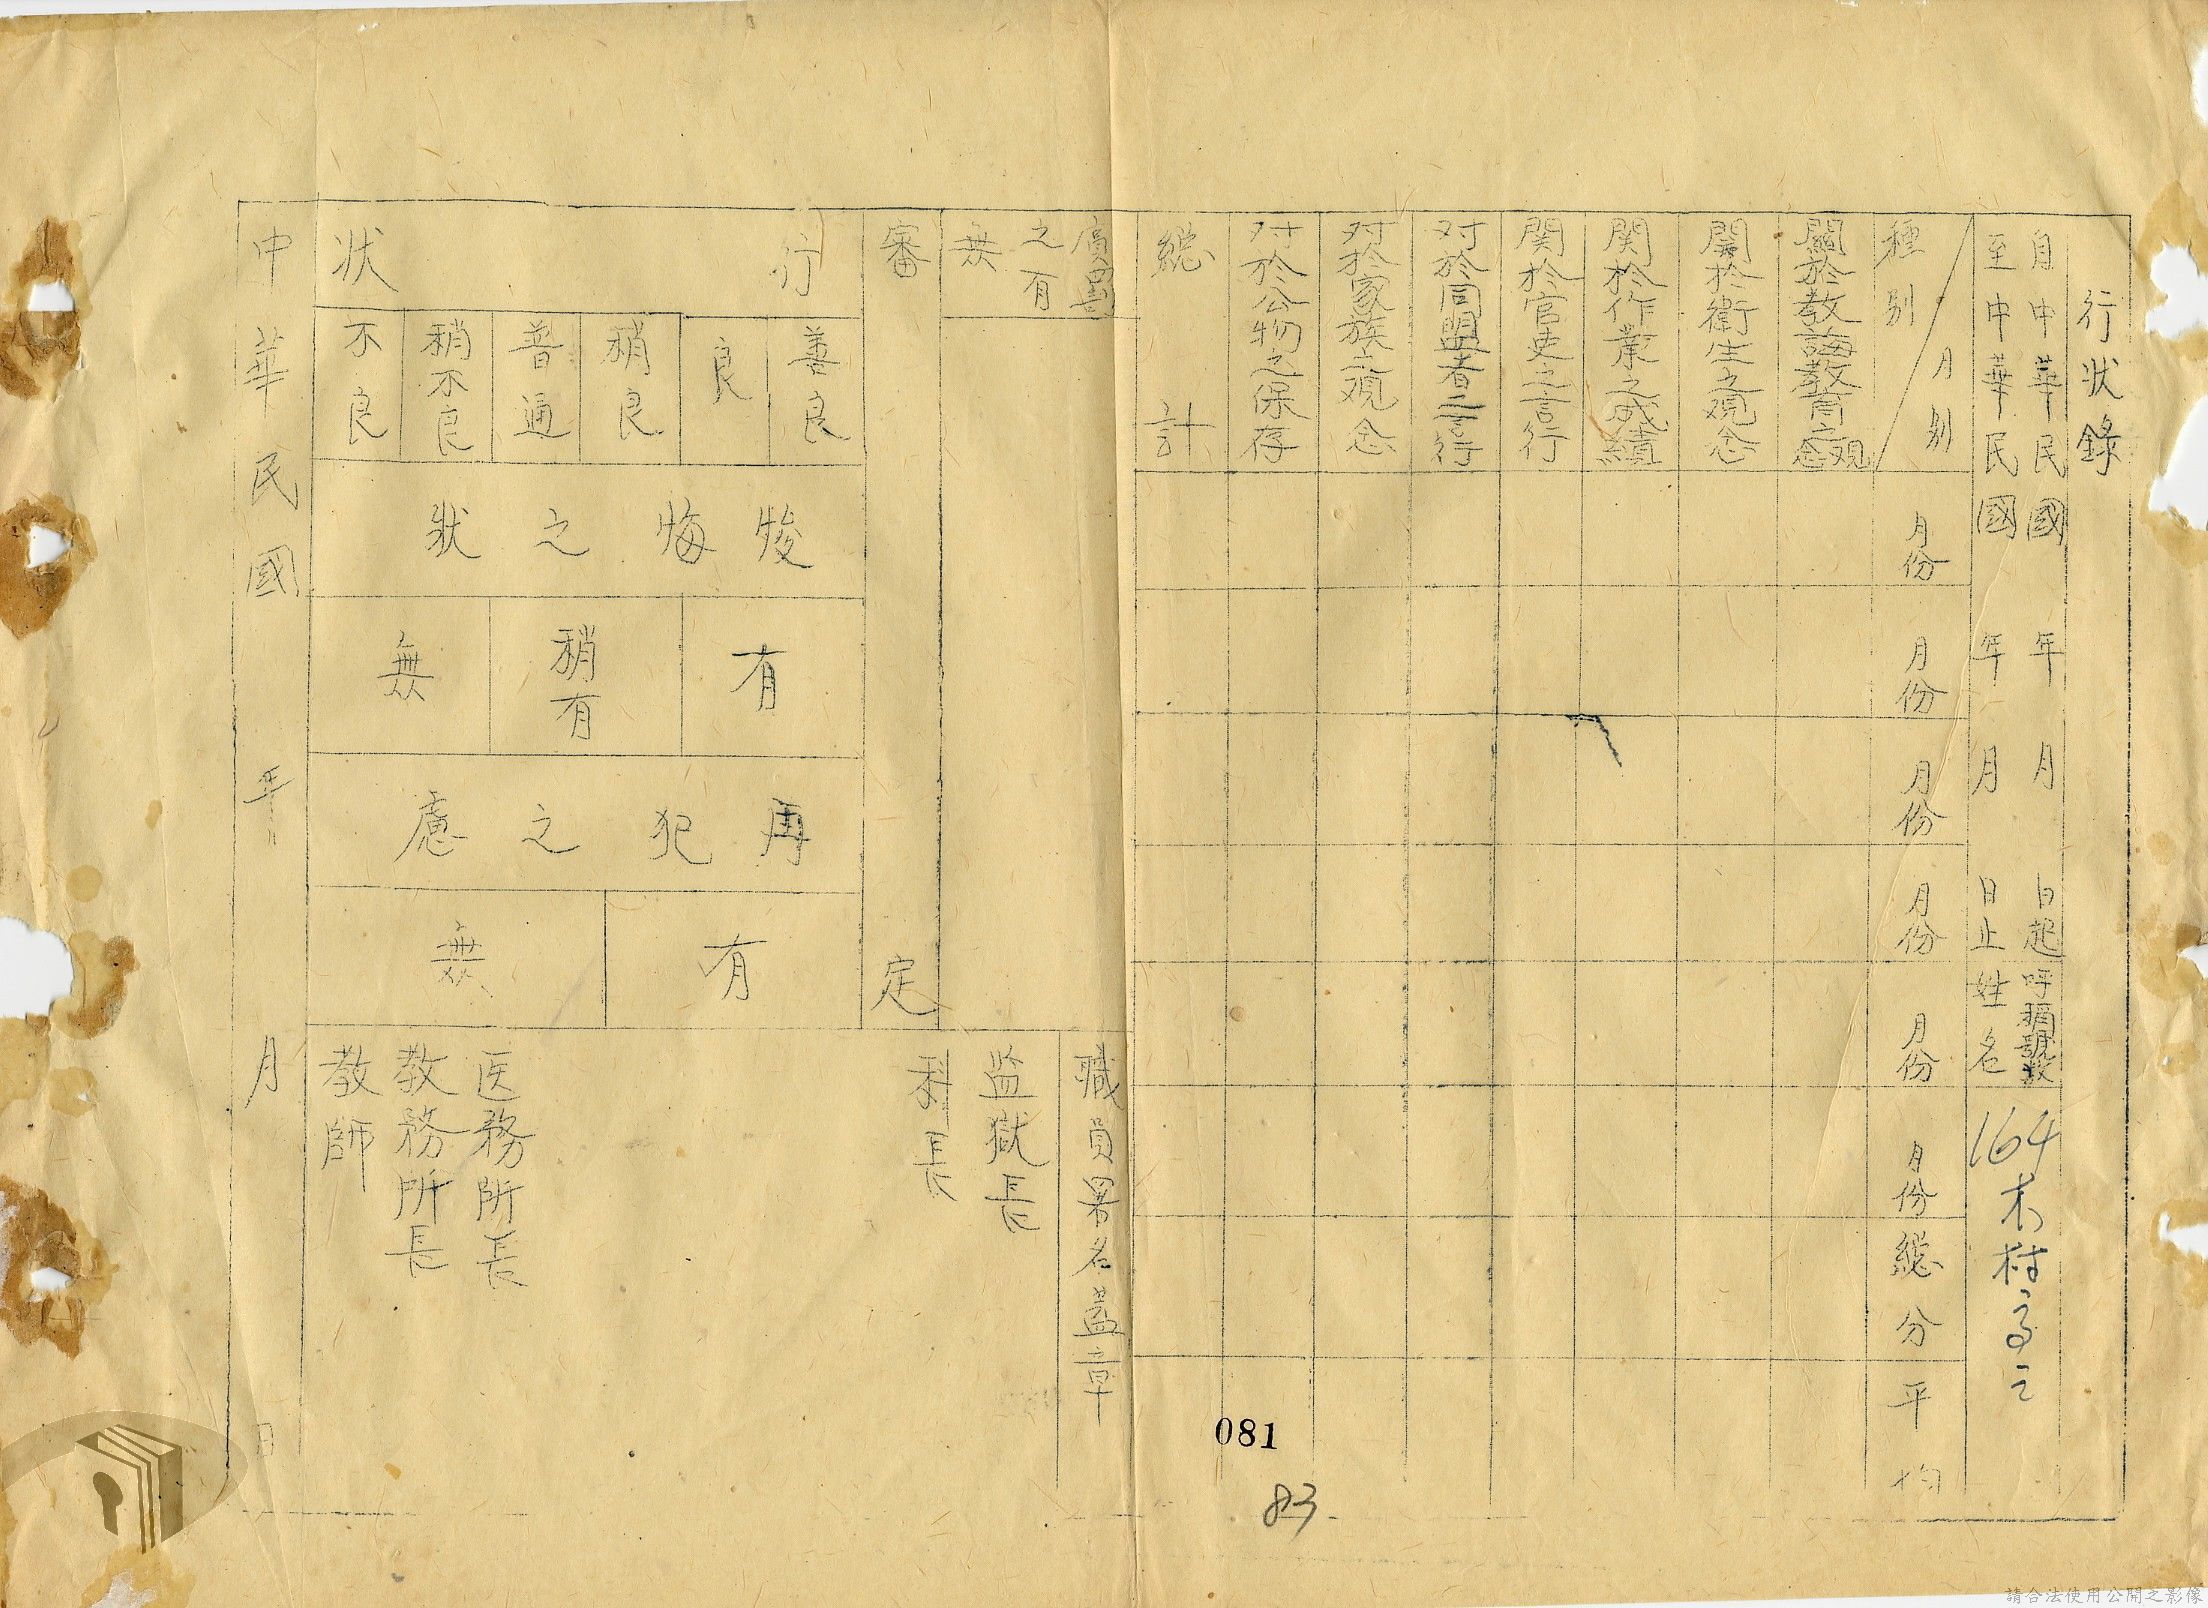 行狀錄
自中華民國 年 月 日起
至中華民國 年 月 日止
呼稱號數
姓名
164
木村高之
種別
月別
月份
月份
月份
月份
月份
月份
総分
平均
關於教誨教育之观念
関於衛生之观念
関於作業之成績
関於官吏之言行
对於同盟者之言行
对於家族之观念
对於公物之保存
総計
賞罰
之有
無
審定
行狀
善良
良
稍良
普通
稍不良
不良
悛悔之狀
有
稍有
無
再犯之慮
有
無
職員署名蓋章
監獄長
科長
医務所長
教務所長
教師
中華民國 年 月 日
081
83
請合法使用公開之影像